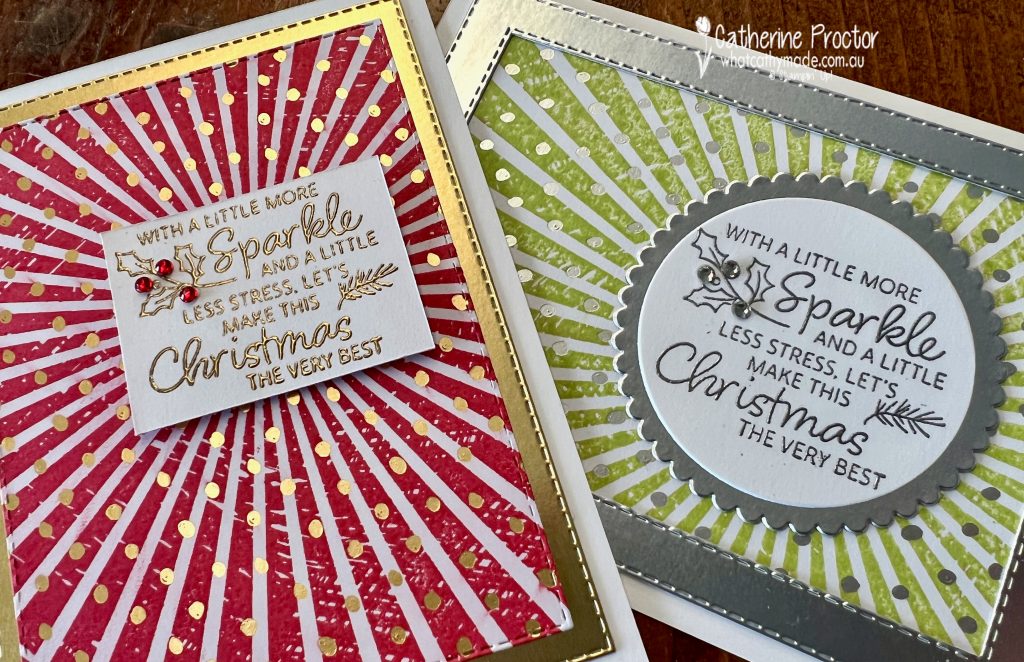 Catherine Proctor
whatcathymade.com.au
© Stampin' Up!
WITH A LITTLE MORE
Sparkle
AND A LITTLE
LESS STRESS, LET'S
MAKE THIS
Christmas
THE VERY BEST
WITH A LITTLE MORE
Sparkle
AND A LITTLE
LESS STRESS, LET'S
MAKE THIS
Christmas
THE VERY BEST